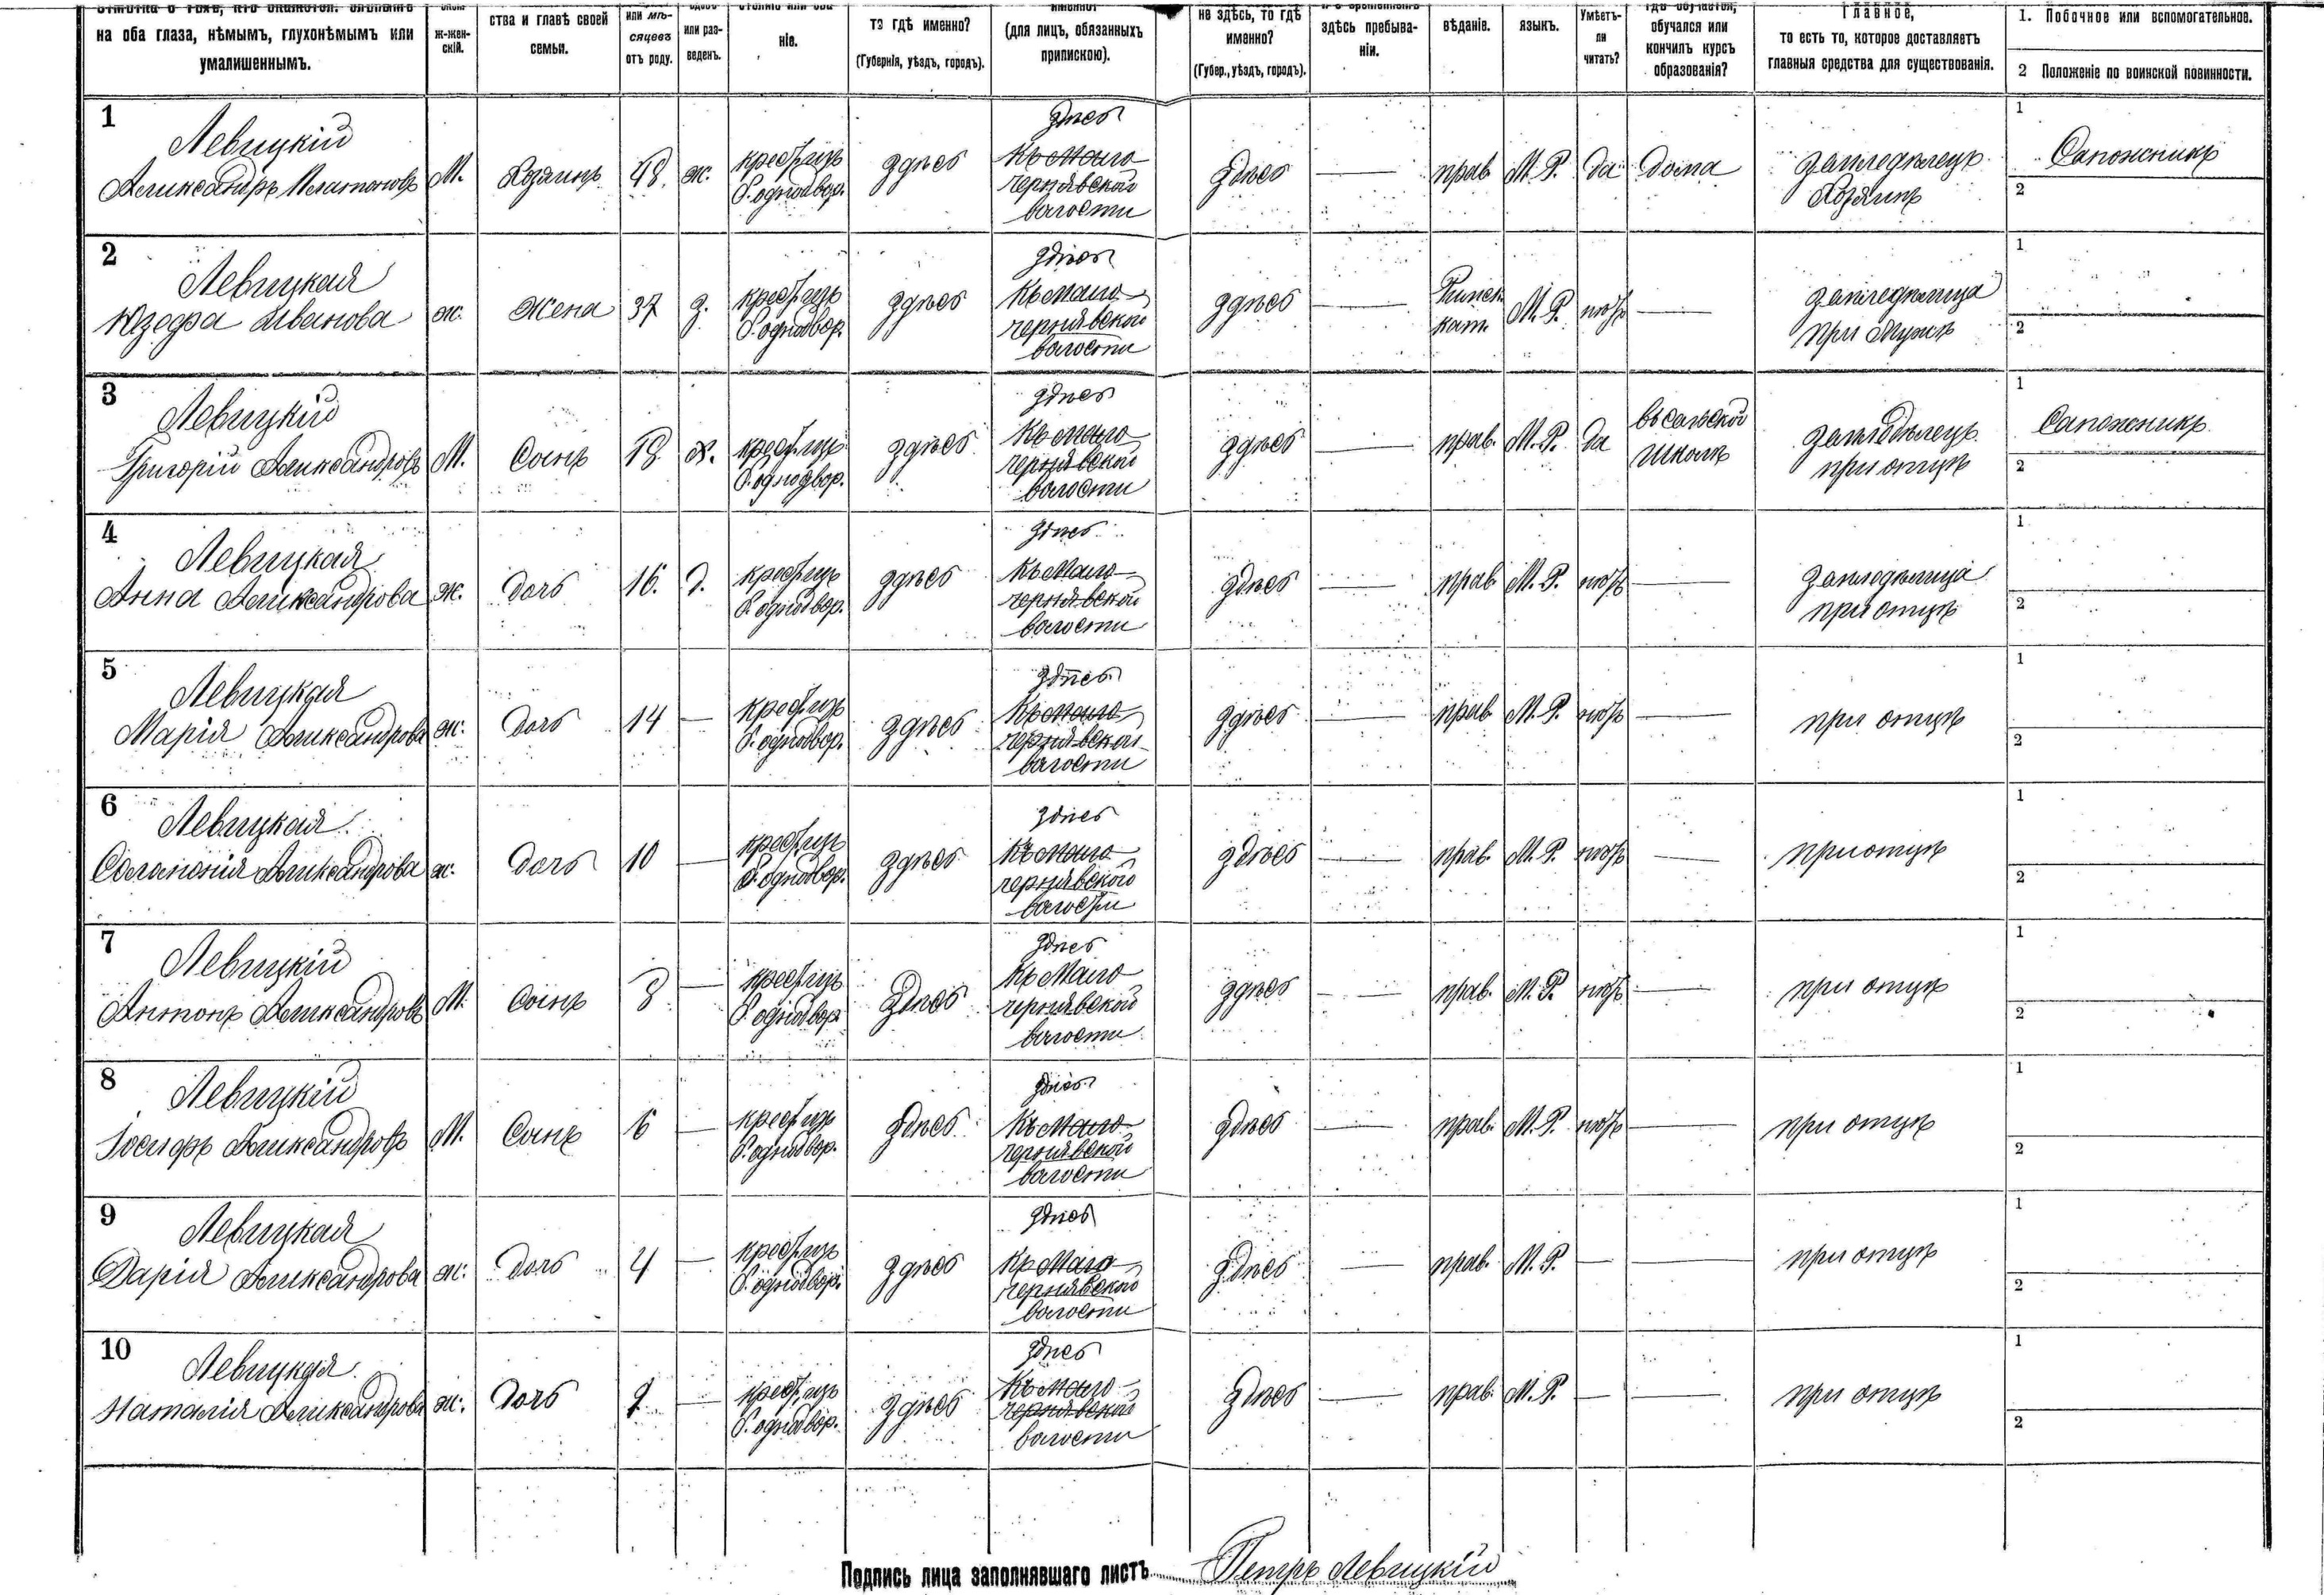 на оба глаза, нѣмымъ, глухонѣмымъ или умалишеннымъ.
ж-жен-скій.
ства и главѣ своей семьи.
или мѣ-сяцевъ отъ роду.
или раз-веденъ.
ніе.
тэ гдѣ именно?
(Губернія, уѣздъ, городъ).
(для лицъ, обязанныхъ припискою).
не здѣсь, то гдѣ именно?
(Губер., уѣздъ, городъ).
здѣсь пребыва-ніи.
вѣданіе.
языкъ.
Умѣетъ-ли читать?
обучался или кончилъ курсъ образованія?
Главное,
то есть то, которое доставляетъ главныя средства для существованія.
1. Побочное или вспомогательное.
2 Положеніе по воинской повинности.
1
Левицкій
Александръ Платоновъ
М.
Хозяинъ
48.
ж.
Б. однодвор.
здѣсь
здѣсь
Къ Мало
чернявской
волости
здѣсь
—
прав
М. Р.
да
дома
земледѣлецъ
Хозяинъ
1
Сапожникъ
2
2
Левицкая
Юзефа Иванова
ж.
Жена
37
з.
Б. однодвор.
здѣсь
здѣсь
Къ Мало
чернявской
волости
здѣсь
—
Римск
кат.
М. Р.
нѣтъ
—
земледѣлица
при мужѣ
1
2
3
Левицкій
Григорій Александровъ
М.
Сынъ
18.
х.
Б. однодвор.
здѣсь
здѣсь
Къ Мало
чернявской
волости
здѣсь
—
прав.
М. Р.
да
въ сельской
школѣ
земледѣлецъ
при отцѣ
1
Сапожникъ
2
4
Левицкая
Анна Александрова
ж.
Дочь
16.
д.
Б. однодвор.
здѣсь
здѣсь
Къ Мало
чернявской
волости
здѣсь
—
прав
М. Р.
нѣтъ
—
земледѣлица
при отцѣ
1
2
5
Левицкая
Марія Александрова
ж.
Дочь
14
—
Б. однодвор.
здѣсь
здѣсь
Къ Мало
чернявской
волости
здѣсь
—
прав.
М. Р.
нѣтъ
—
при отцѣ
1
2
6
Левицкая
Соломонія Александрова
ж.
Дочь
10
—
Б. однодвор.
здѣсь
здѣсь
Къ Мало
чернявской
волости
здѣсь
—
прав.
М. Р.
нѣтъ
—
при отцѣ
1
2
7
Левицкій
Антонъ Александровъ
М.
Сынъ
8
—
Б. однодвор.
здѣсь
здѣсь
Къ Мало
чернявской
волости
здѣсь
—
прав.
М. Р.
нѣтъ
—
при отцѣ
1
2
8
Левицкій
Іосифъ Александровъ
М.
Сынъ
6
—
Б. однодвор.
здѣсь
здѣсь
Къ Мало
чернявской
волости
здѣсь
—
прав.
М. Р.
нѣтъ
—
при отцѣ
1
2
9
Левицкая
Дарія Александрова
ж.
Дочь
4
—
Б. однодвор.
здѣсь
здѣсь
Къ Мало
чернявской
волости
здѣсь
—
прав.
М. Р.
—
—
при отцѣ
1
2
10
Левицкая
Наталія Александрова
ж.
Дочь
—
Б. однодвор.
здѣсь
здѣсь
Къ Мало
чернявской
волости
здѣсь
—
прав.
М. Р.
—
—
при отцѣ
1
2
Подпись лица заполнявшаго листъ Петръ Левицкій